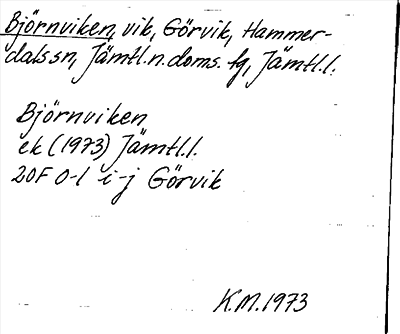 Björnviken, vik, Görvik, Hammer-
dals sn, Jämtl.n. doms. fg, Jämtl.l.
Björnviken
ek (1973) Jämtl.l.
20F 0-1 i-j Görvik
K.M. 1973